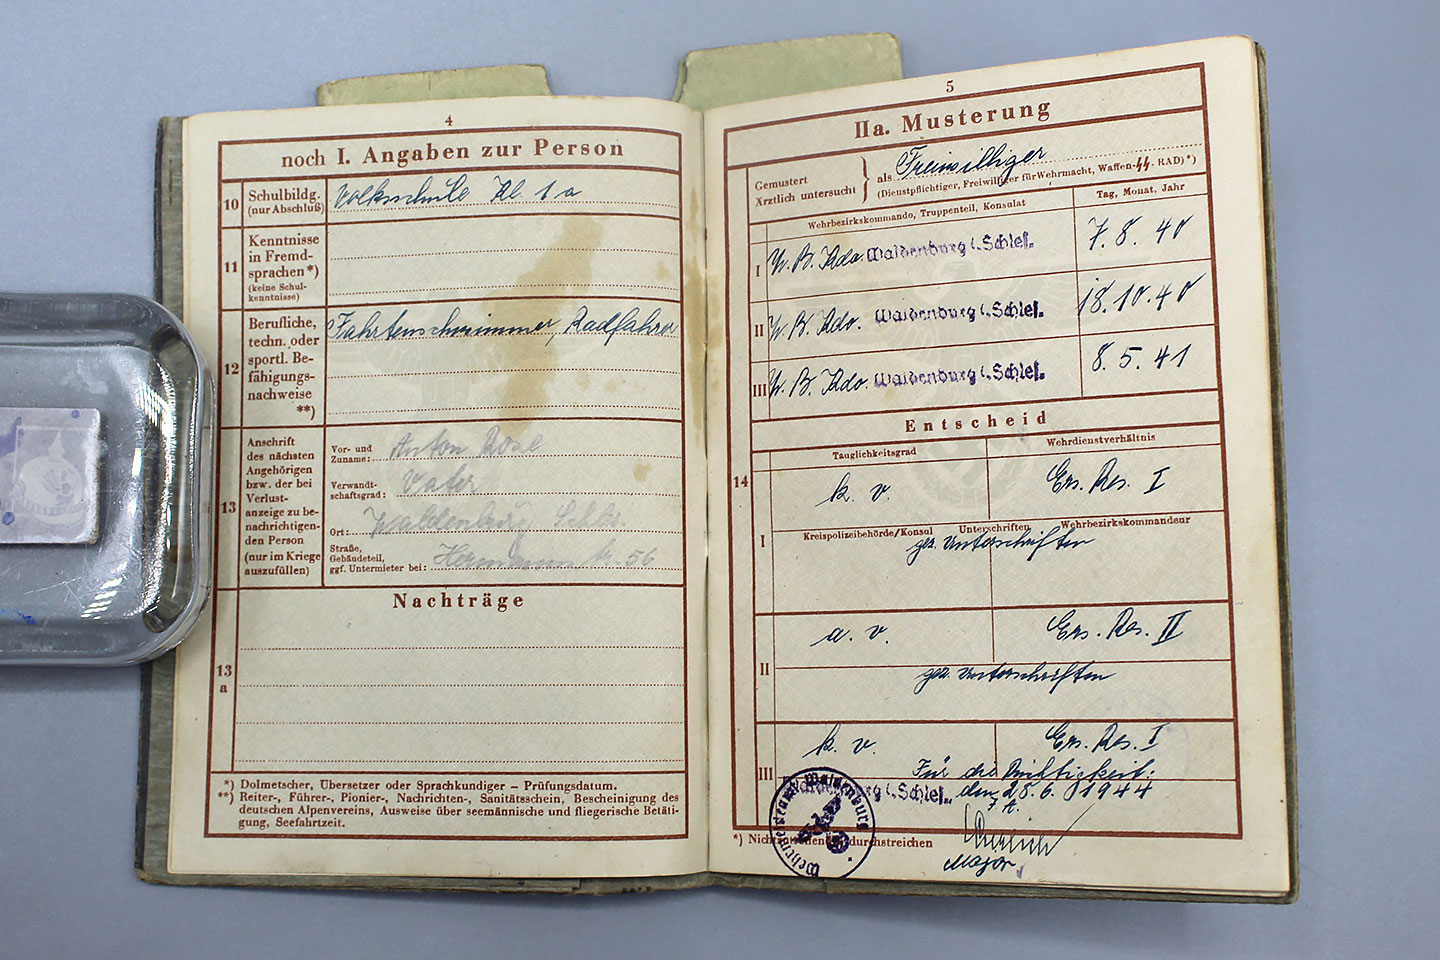 4
noch I. Angaben zur Person
10
Schulbildg.
(nur Abschluß)
Volksschule Kl. 1a
11
Kenntnisse
in Fremd-
sprachen*)
(keine Schul-
kenntnisse)
12
Berufliche,
techn. oder
sportl. Be-
fähigungs-
nachweise
**)
Fahrtenschwimmer, Radfahrer
13
Anschrift
des nächsten
Angehörigen
bzw. der bei
Verlust-
anzeige zu be-
nachrichtigen-
den Person
(nur im Kriege
auszufüllen)
Vor- und
Zuname: Anton Rose
Verwandt-
schaftsgrad: Vater
Ort: Waldenburg Schles.
Straße,
Gebäudeteil,
ggf. Untermieter bei: Hermann Str. 56
Nachträge
13
a
*) Dolmetscher, Übersetzer oder Sprachkundiger – Prüfungsdatum.
**) Reiter-, Führer-, Pionier-, Nachrichten-, Sanitätsschein, Bescheinigung des
deutschen Alpenvereins, Ausweise über seemännische und fliegerische Betäti-
gung, Seefahrtzeit.
5
IIa. Musterung
Gemustert
Ärztlich untersucht
als Freiwilliger
(Dienstpflichtiger, Freiwilliger für Wehrmacht, Waffen-SS. RAD)*)
Wehrbezirkskommando, Truppenteil, Konsulat
Tag, Monat, Jahr
I W. B. Kdo. Waldenburg i. Schles. 7. 8. 40
II W. B. Kdo. Waldenburg i. Schles. 18. 10. 40
III W. B. Kdo. Waldenburg i. Schles. 8. 5. 41
Entscheid
14
Tauglichkeitsgrad
Wehrdienstverhältnis
k. v. Ers. Res. I
I
Kreispolizeibehörde/Konsul Unterschriften Wehrbezirkskommandeur
gez. Unterschriften
II
a. v. Ers. Res. II
gez. Unterschriften
III
k. v. Ers. Res. I
Für die Richtigkeit:
Waldenburg i. Schles., den 25. 6. 1944
J. A.
Major
Wehrmeldeamt Waldenburg
*) Nichtzutreffendes durchstreichen